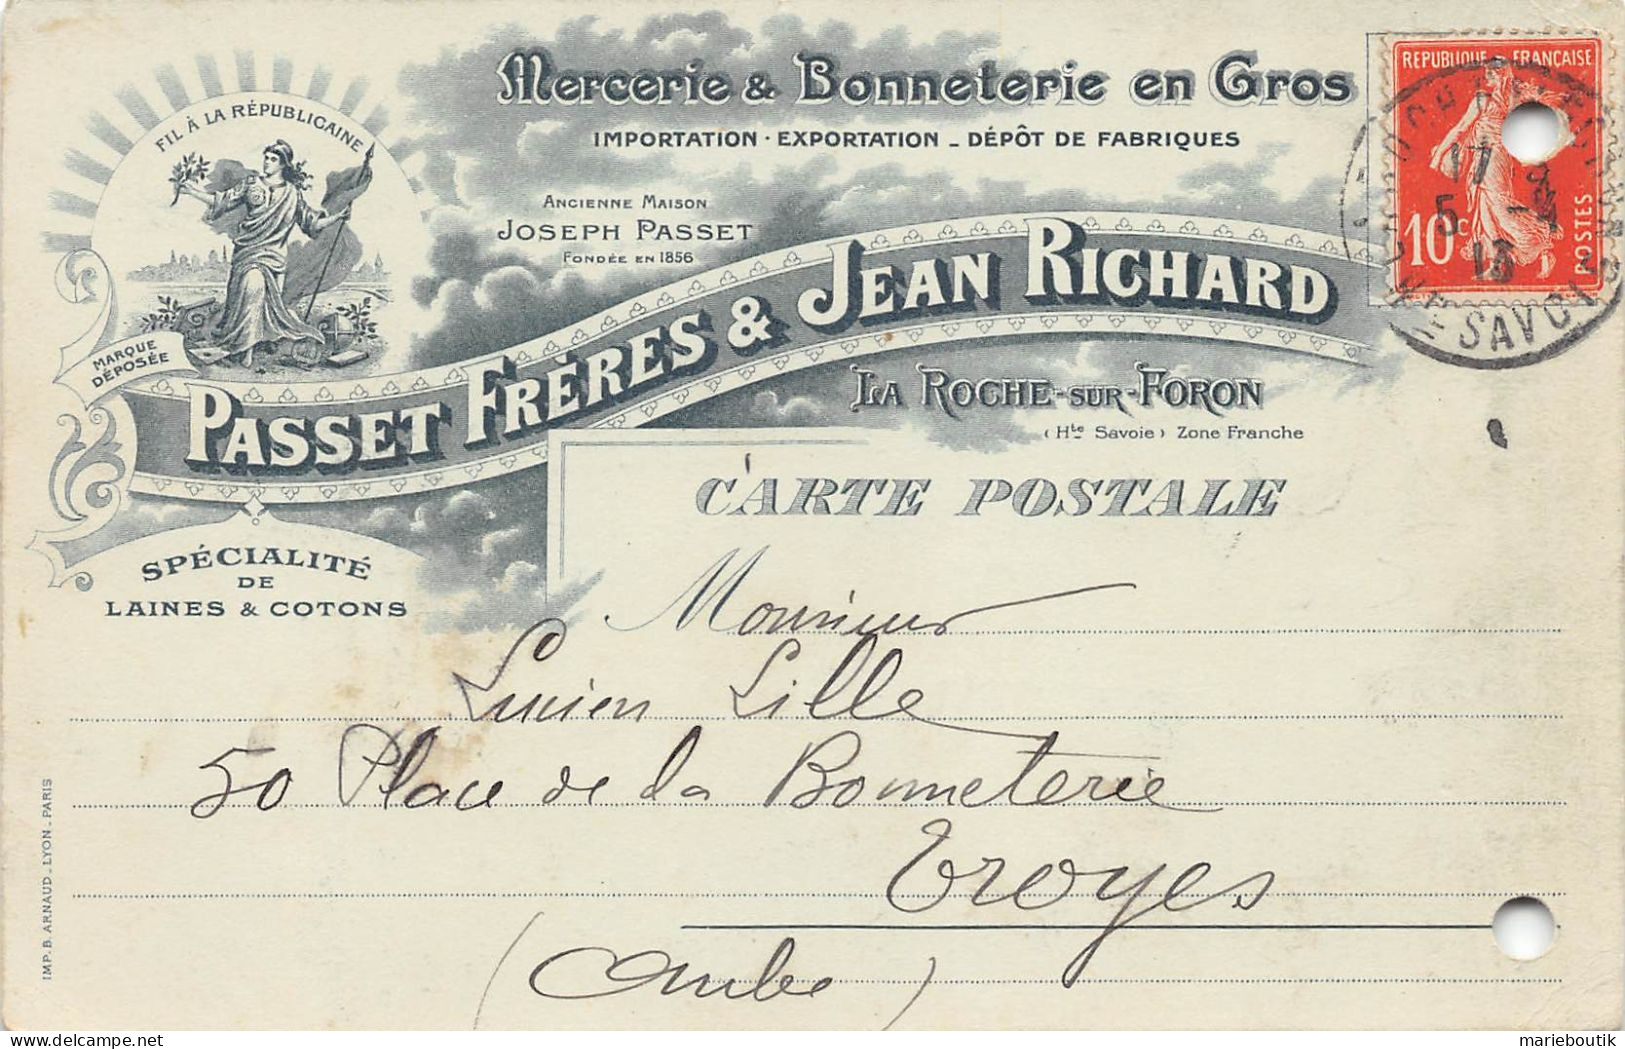 Mercerie & Bonneterie en Gros
IMPORTATION · EXPORTATION _ DÉPÔT DE FABRIQUES
FIL À LA RÉPUBLICAINE
ANCIENNE MAISON
JOSEPH PASSET
FONDÉE EN 1856
MARQUE
DÉPOSÉE
PASSET FRÈRES & JEAN RICHARD
LA ROCHE-SUR-FORON
(Hte Savoie) Zone Franche
SPÉCIALITÉ
DE
LAINES & COTONS
REPUBLIQUE FRANÇAISE
10c
POSTES
17
5
13
SAVOIE
CARTE POSTALE
Monsieur
Lucien Lille
50 Place de la Bonneterie
Troyes
(Aube)
IMP. B. ARNAUD_LYON_PARIS
marieboutik